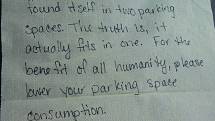 found itself in two parking
spaces. The truth is, it
actually fits in one. For the
benefit of all humanity, please
lower your parking space
consumption.